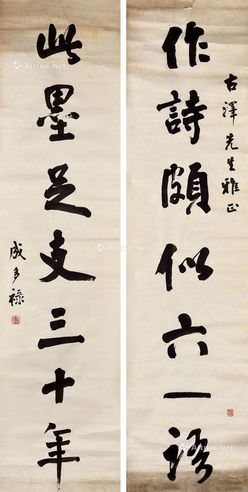 古澤先生雅正
作詩頗似六一語
此墨足支三十年
成多祿
Art
Art
Art
Art